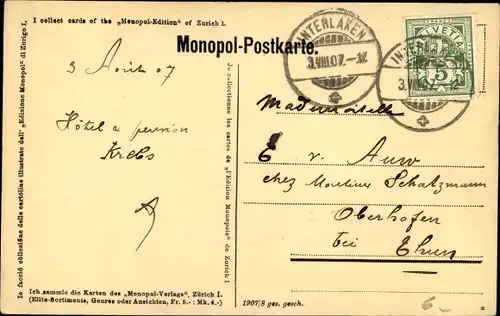 I collect cards of the „Monopol-Edition" of Zurich I.
Monopol-Postkarte.
INTERLAKEN
3.VIII.07.-12
HELVETIA
5
3 Août 07
Hôtel & pension
Krebs
Mademoiselle
E v. Auw
chez Monsieur Schatzmann
Oberhofen
bei Thun
Io faccio collezione delle cartoline illustrate dall' „Edizione Monopol" di Zurigo I.
Je collectionne les cartes de „l'Edition Monopole" de Zurich I.
Ich sammle die Karten des „Monopol-Verlags", Zürich I.
(Elite-Sortiments, Genres oder Ansichten, Fr. 5.- : Mk. 4.-)
1907/8 ges. gesch.
6_